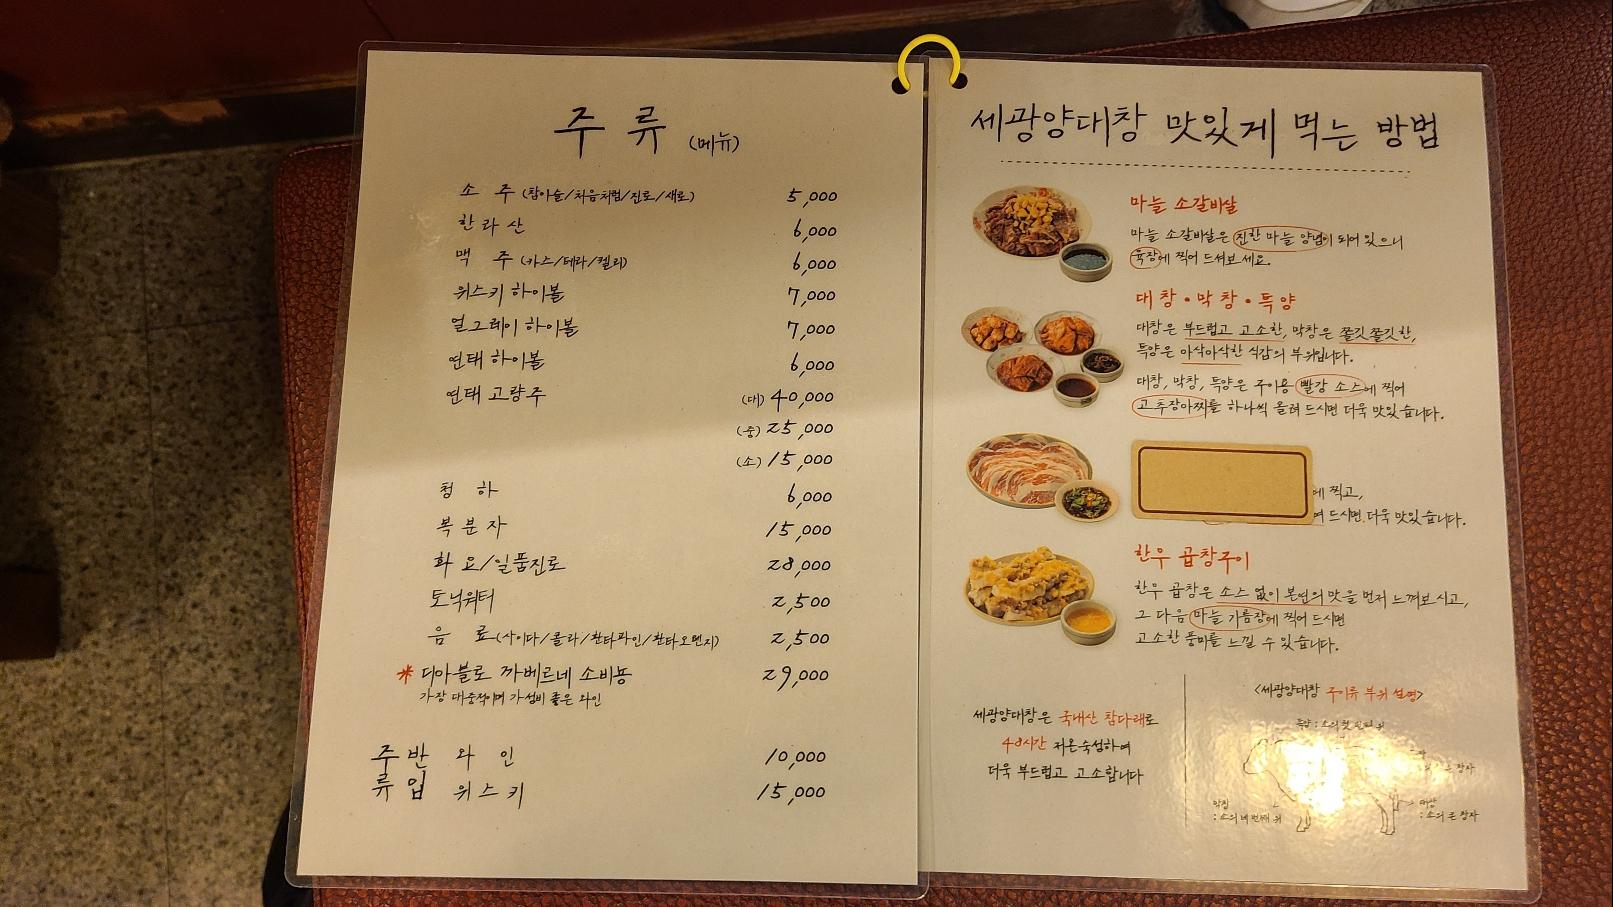 주 류 (메뉴)
소 주 (참이슬/처음처럼/진로/새로) 5,000
한 라 산 6,000
맥 주 (카스/테라/켈리) 6,000
위스키 하이볼 7,000
얼그레이 하이볼 7,000
연태 하이볼 6,000
연태 고량주 (대) 40,000
(중) 25,000
(소) 15,000
청 하 6,000
복 분 자 15,000
화 요/일품진로 28,000
토닉워터 2,500
음 료(사이다/콜라/환타파인/환타오렌지) 2,500
* 디아블로 까베르네 소비뇽 29,000
가장 대중적이며 가성비 좋은 와인
주류 반입 와 인 10,000
위스키 15,000
세광양대창 맛있게 먹는 방법
마늘 소갈비살
마늘 소갈비살은 진한 마늘 양념이 되어 있으니
육장에 찍어 드셔보세요.
대창•막창•특양
대창은 부드럽고 고소한, 막창은 쫄깃쫄깃한,
특양은 아삭아삭한 식감의 부위입니다.
대창, 막창, 특양은 구이용 빨강 소스에 찍어
고추장아찌를 하나씩 올려 드시면 더욱 맛있습니다.
에 찍고,
여 드시면 더욱 맛있습니다.
한우 곱창구이
한우 곱창은 소스 없이 본연의 맛을 먼저 느껴보시고,
그 다음 마늘 기름장에 찍어 드시면
고소한 풍미를 느낄 수 있습니다.
세광양대창은 국내산 참다래로
48시간 저온숙성하여
더욱 부드럽고 고소합니다
<세광양대창 구이류 부위 설명>
특양 : 소의 첫 번째 위
장자
막창
: 소의 네 번째 위
대창
: 소의 큰 창자